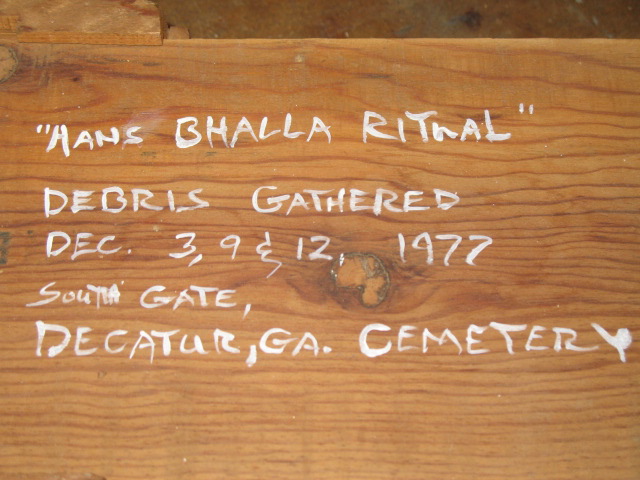 "HANS BHALLA RITUAL"
DEBRIS GATHERED
DEC. 3, 9 & 12, 1977
SOUTH GATE,
DECATUR, GA. CEMETERY